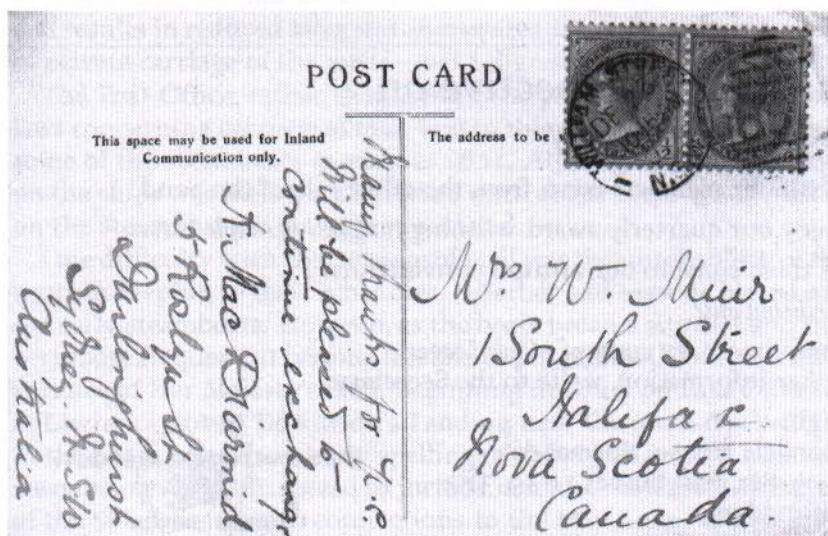 POST CARD
This space may be used for Inland
Communication only.
The address to be
Many thanks for P.C.
Will be pleased to
continue exchange
A MacDiarmid
Roslyn St
Darlinghurst
Sydney. N. S. W.
Australia
WILLIAM STREET
N.S.W
Mrs. W. Muir
1 South Street
Halifax
Nova Scotia
Canada.